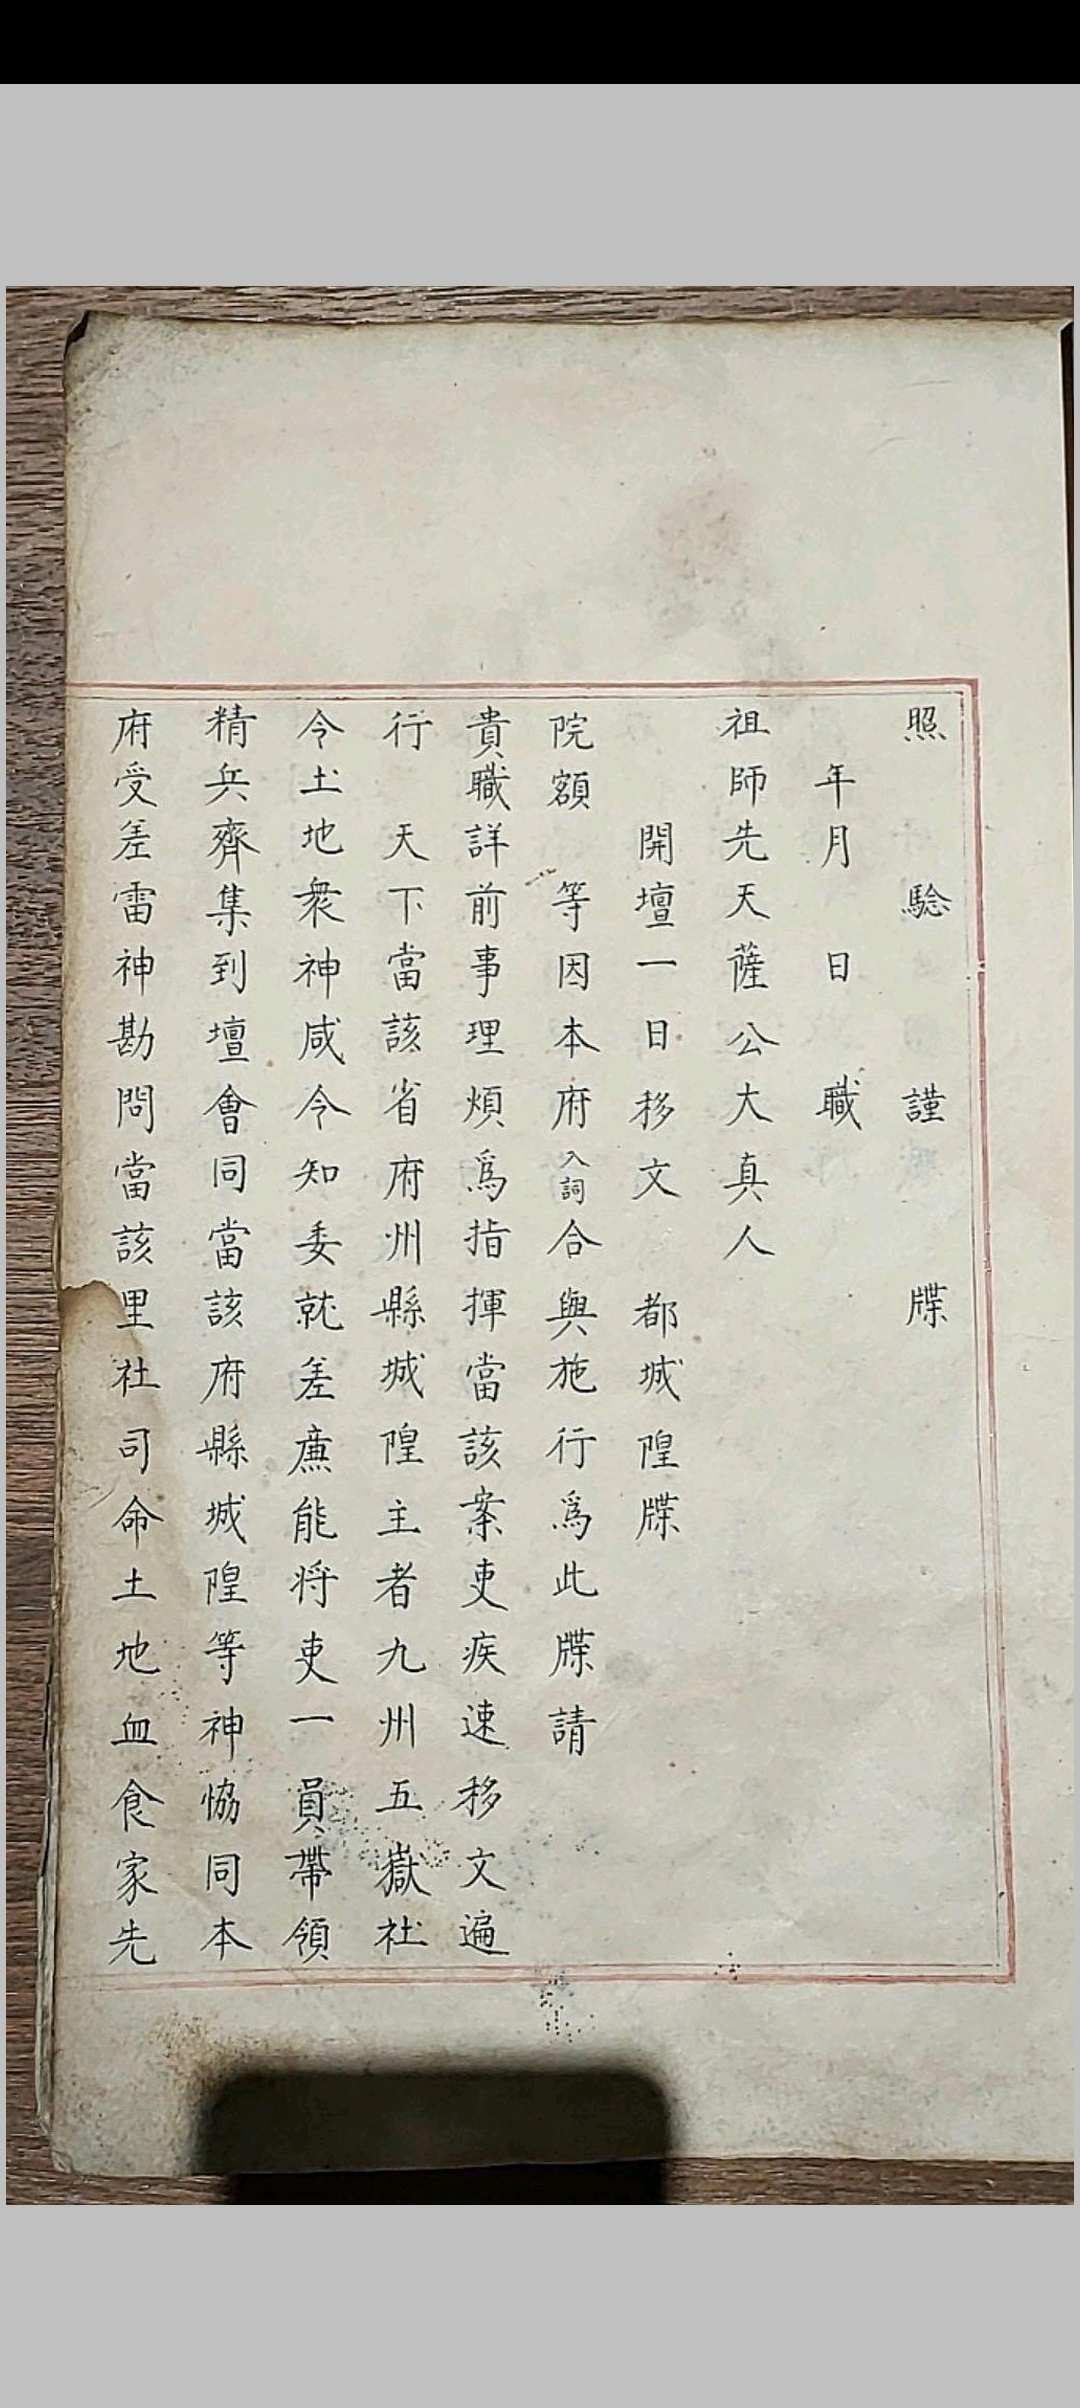 照驗謹牒
年月日職
祖師先天薩公大真人
開壇一日移文 都城隍牒
院額 等因本府入詞合與施行為此牒請
貴職詳前事理煩為指揮當該案吏疾速移文遍
行 天下當該省府州縣城隍主者九州五嶽社
令土地衆神咸令知委就差廉能將吏一員帶領
精兵齊集到壇會同當該府縣城隍等神恊同本
府受差雷神勘問當該里社司命土地血食家先